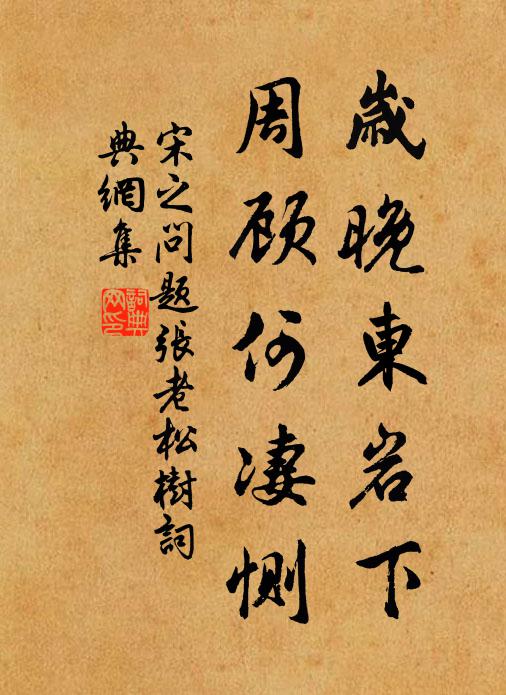 歲晚東岩下
周顾何凄惻
宋之问题張老松樹詞
典網集
詞典
网印